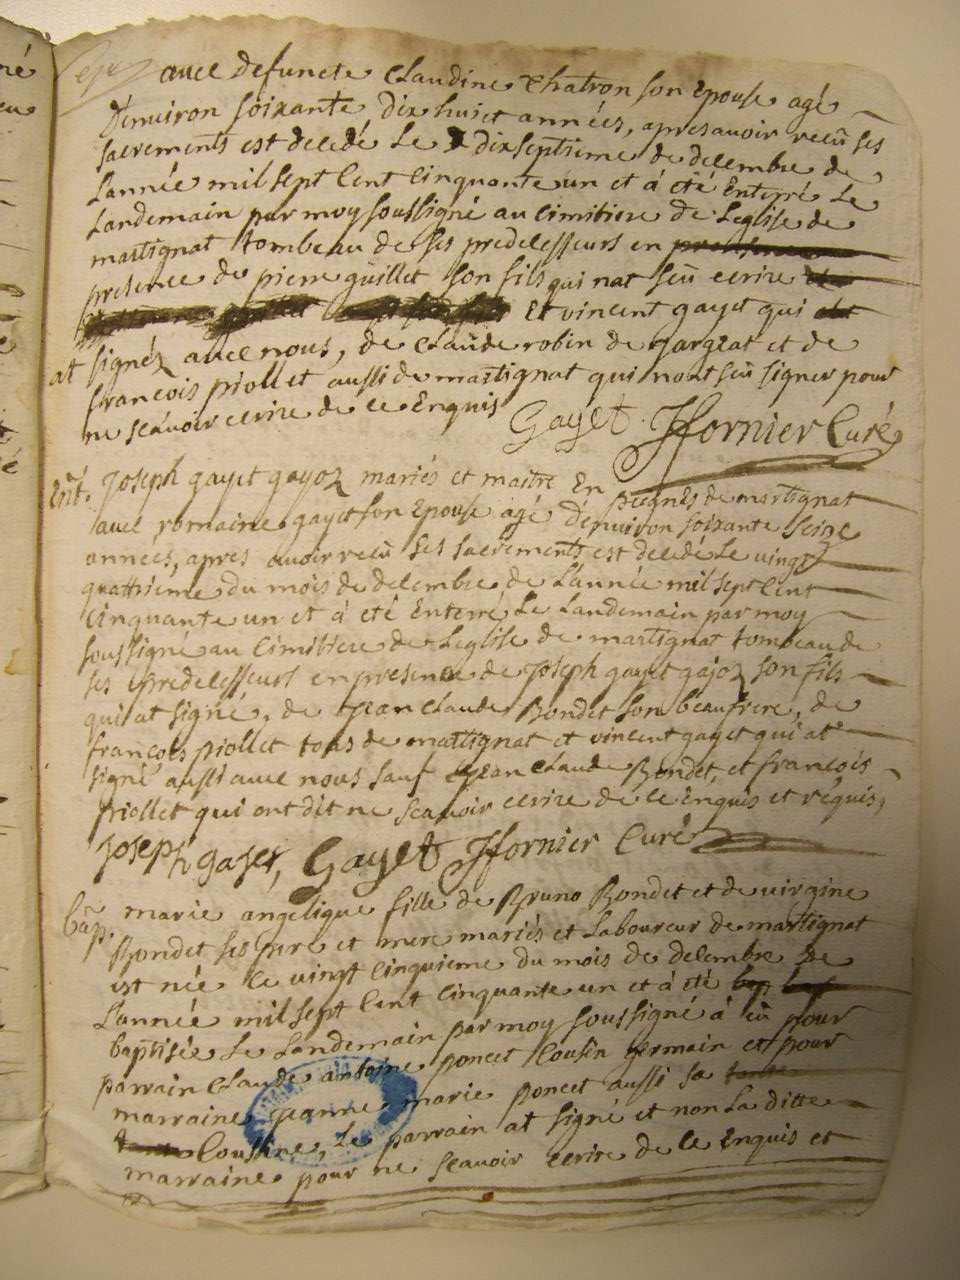 avec defuncte Claudine Chatron son Epouse agé
D'environ soixante dix huict années, apres avoir reçu ses
sacrements est decedé Le dixseptieme de decembre de
L'année mil sept Cent Cinquante un et á eté Enterré Le
Landemain par moy soussigné au cimitiere de L'eglise de
martignat tombeau de ses predecesseurs en
presence de pierre guillet son fils qui n'at seu ecrire
Et vincent gayet qui
at signéz avec nous, de Claude robin de gargeat et de
francois piollet aussi de martignat qui n'ont seu signer pour
ne sçavoir ecrire de ce Enquis
Gayet Jfornier Curé
Ent. Joseph gayet gayoz mariés et maitre En peignes de martignat
avec romaine gayet son Epouse agé D'environ soixante seize
années, apres avoir reçu ses sacrements est decedé Le vingt
quattrieme du mois de decembre de L'année mil sept Cent
Cinquante un et á eté Enterré Le Landemain par moy
soussigné au Cimitiere de L'eglise de martignat tombeau de
ses predecesseurs en presence de Joseph gayet gajoz son fils
qui at signé, de jean Claude Rondet son beaufrere, de
françois piollet tous de martignat et vincent gayet qui at
signé aussi avec nous sauf jean Claude Rondet, et francois
Piollet qui ont dit ne scavoir ecrire de ce Enquis et réquis,
Joseph gayet, Gayet Jfornier Curé
Bap. marie angelique fille de Bruno Rondet et de virgine
Rondet ses pere et mere mariés et Laboureur de martignat
est née Le vingt Cinquieme du mois de decembre de
L'année mil sept Cent Cinquante un et á eté
baptisée Le Landemain par moy soussigné á eu pour
parrain Claude antoine poncet Cousin germain et pour
marraine jeanne marie poncet aussi sa
Coussine, Le parrain at signé et non La ditte
marraine pour ne scavoir ecrire de ce Enquis et